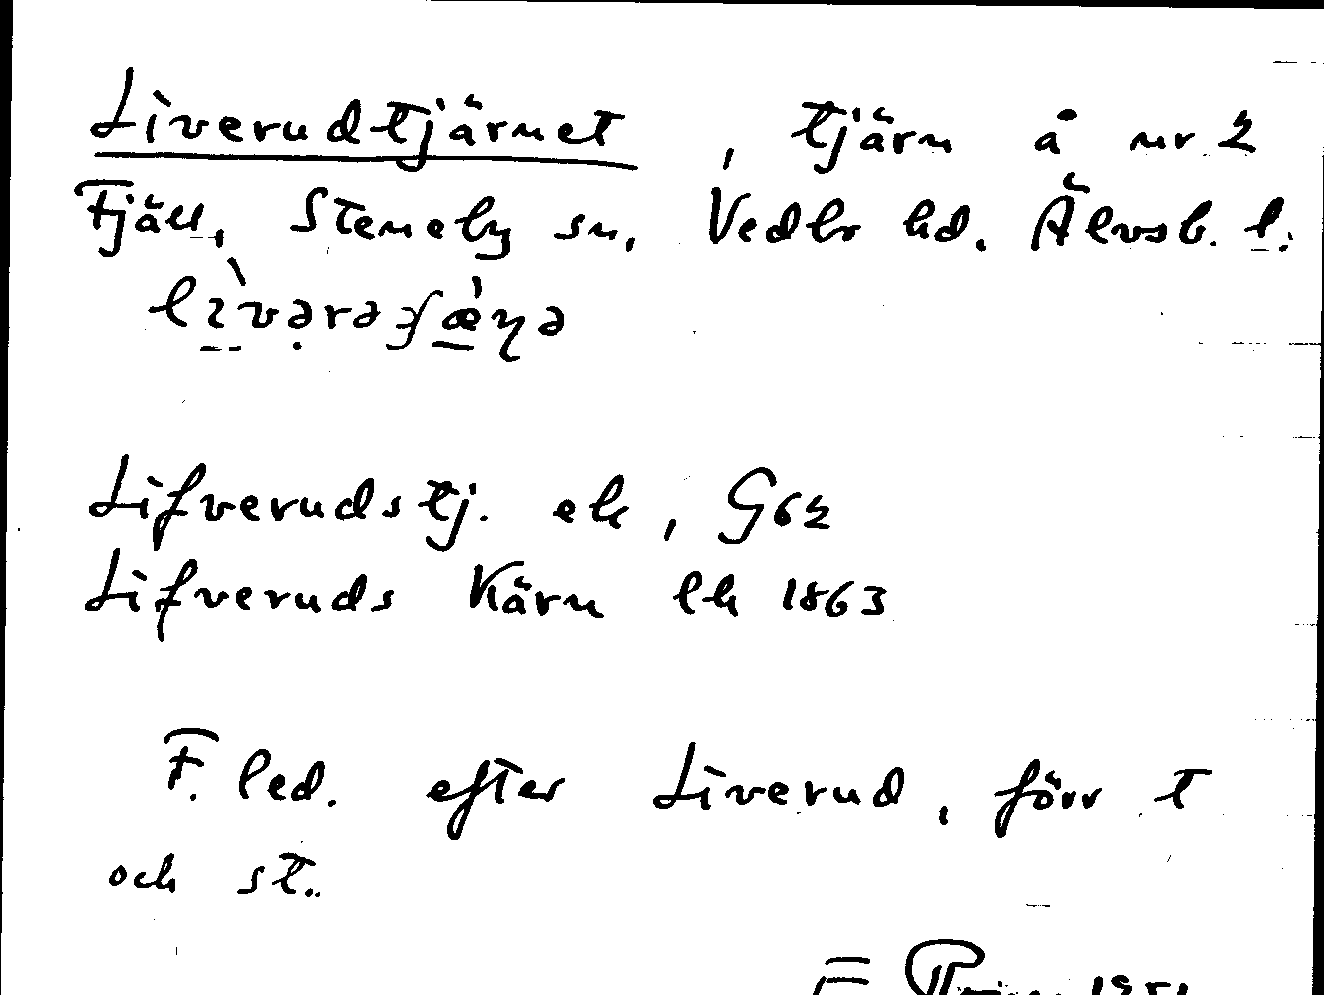 Liverudtjärnet, tjärn å nr 2
Fjäll, Steneby sn, Vedbo hd. Älvsb. l.
Lifverudstj. ek, G62
Lifveruds Kärn lk 1863
F. led. efter Liverud, förr t
och st..